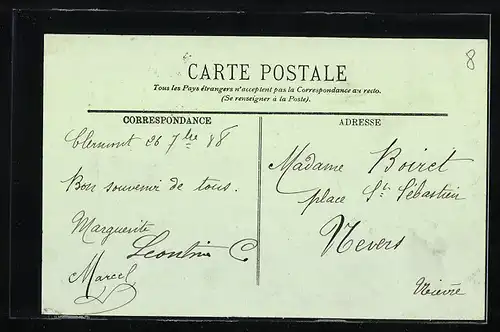 8
CARTE POSTALE
Tous les Pays étrangers n'acceptent pas la Correspondance au recto.
(Se renseigner à la Poste).
CORRESPONDANCE
Clermont 26 7bre
Bon souvenir de tous.
Marguerite
Leontine C.
Marcel
ADRESSE
Madame Boiret
place St Sébastien
Nevers
Nièvre